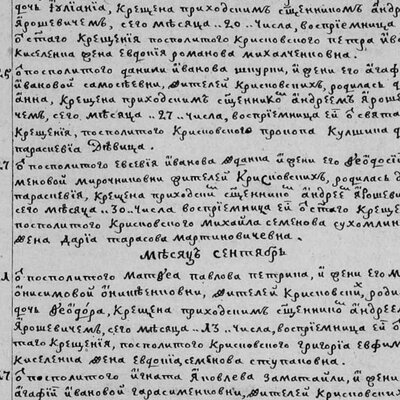 дочь Іуліанїа, Крещена приходскимъ сщ҃енникомъ Андр
Ярошевичемъ, сего мѣсяца ..20.. числа, воспрїемница
ѿ ст҃аго Крещенїя посполитого Крисковского петра ива
Киселенка жена Евдокїя романова михалченковна.
25 ѿ посполитого данили иванова шпурки, и жени его Агаф
ивановой самосѣевни, жителей Крисковскихъ, родилась д
анна, Крещена приходскимъ сщ҃енникомъ андреемъ Яроше
чемъ, сего мѣсяца ..27.. числа, воспрїемница ей ѿ свята
Крещенїя, посполитого Крисковского прокопа Кулшина д
параскевїа Дѣвица.
27 ѿ посполитого Евсевїя иванова и жени его Ѳеѡдосї
меновой мирочниковни жителей Крисковскихъ, родилась д
параскевїя, Крещена приходскимъ сщ҃енникомъ андреемъ Ярошеви
сего мѣсяца ..30.. числа воспрїемница ей ѿ ст҃аго Креще
посполитого Крисковского михайла семенова сухомлин
жена Дарїа тарасова мартиновичевна.
Мѣсяцъ сентябръ
1 ѿ посполитого матвѣа павлова петрика, и жени его м
онисимовой жителей Крисковскихъ, роди
дочь Ѳеѡдора, Крещена приходскимъ сщ҃енникомъ андреем
Ярошевичемъ, сего мѣсяца ..13.. числа, воспрїемница ей ѿ
таго Крещенїя, посполитого Крисковского григорїа евфим
Киселенка жена Евдокїа, семенова ступаковна.
27 ѿ посполитого игната Яковлева и жени
агафїи ивановой герасименковни, жителей Крисковских